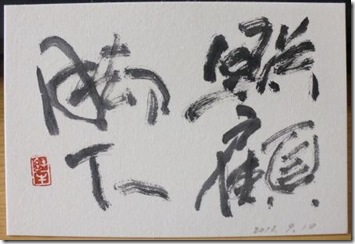 照顧
脚下
9.10